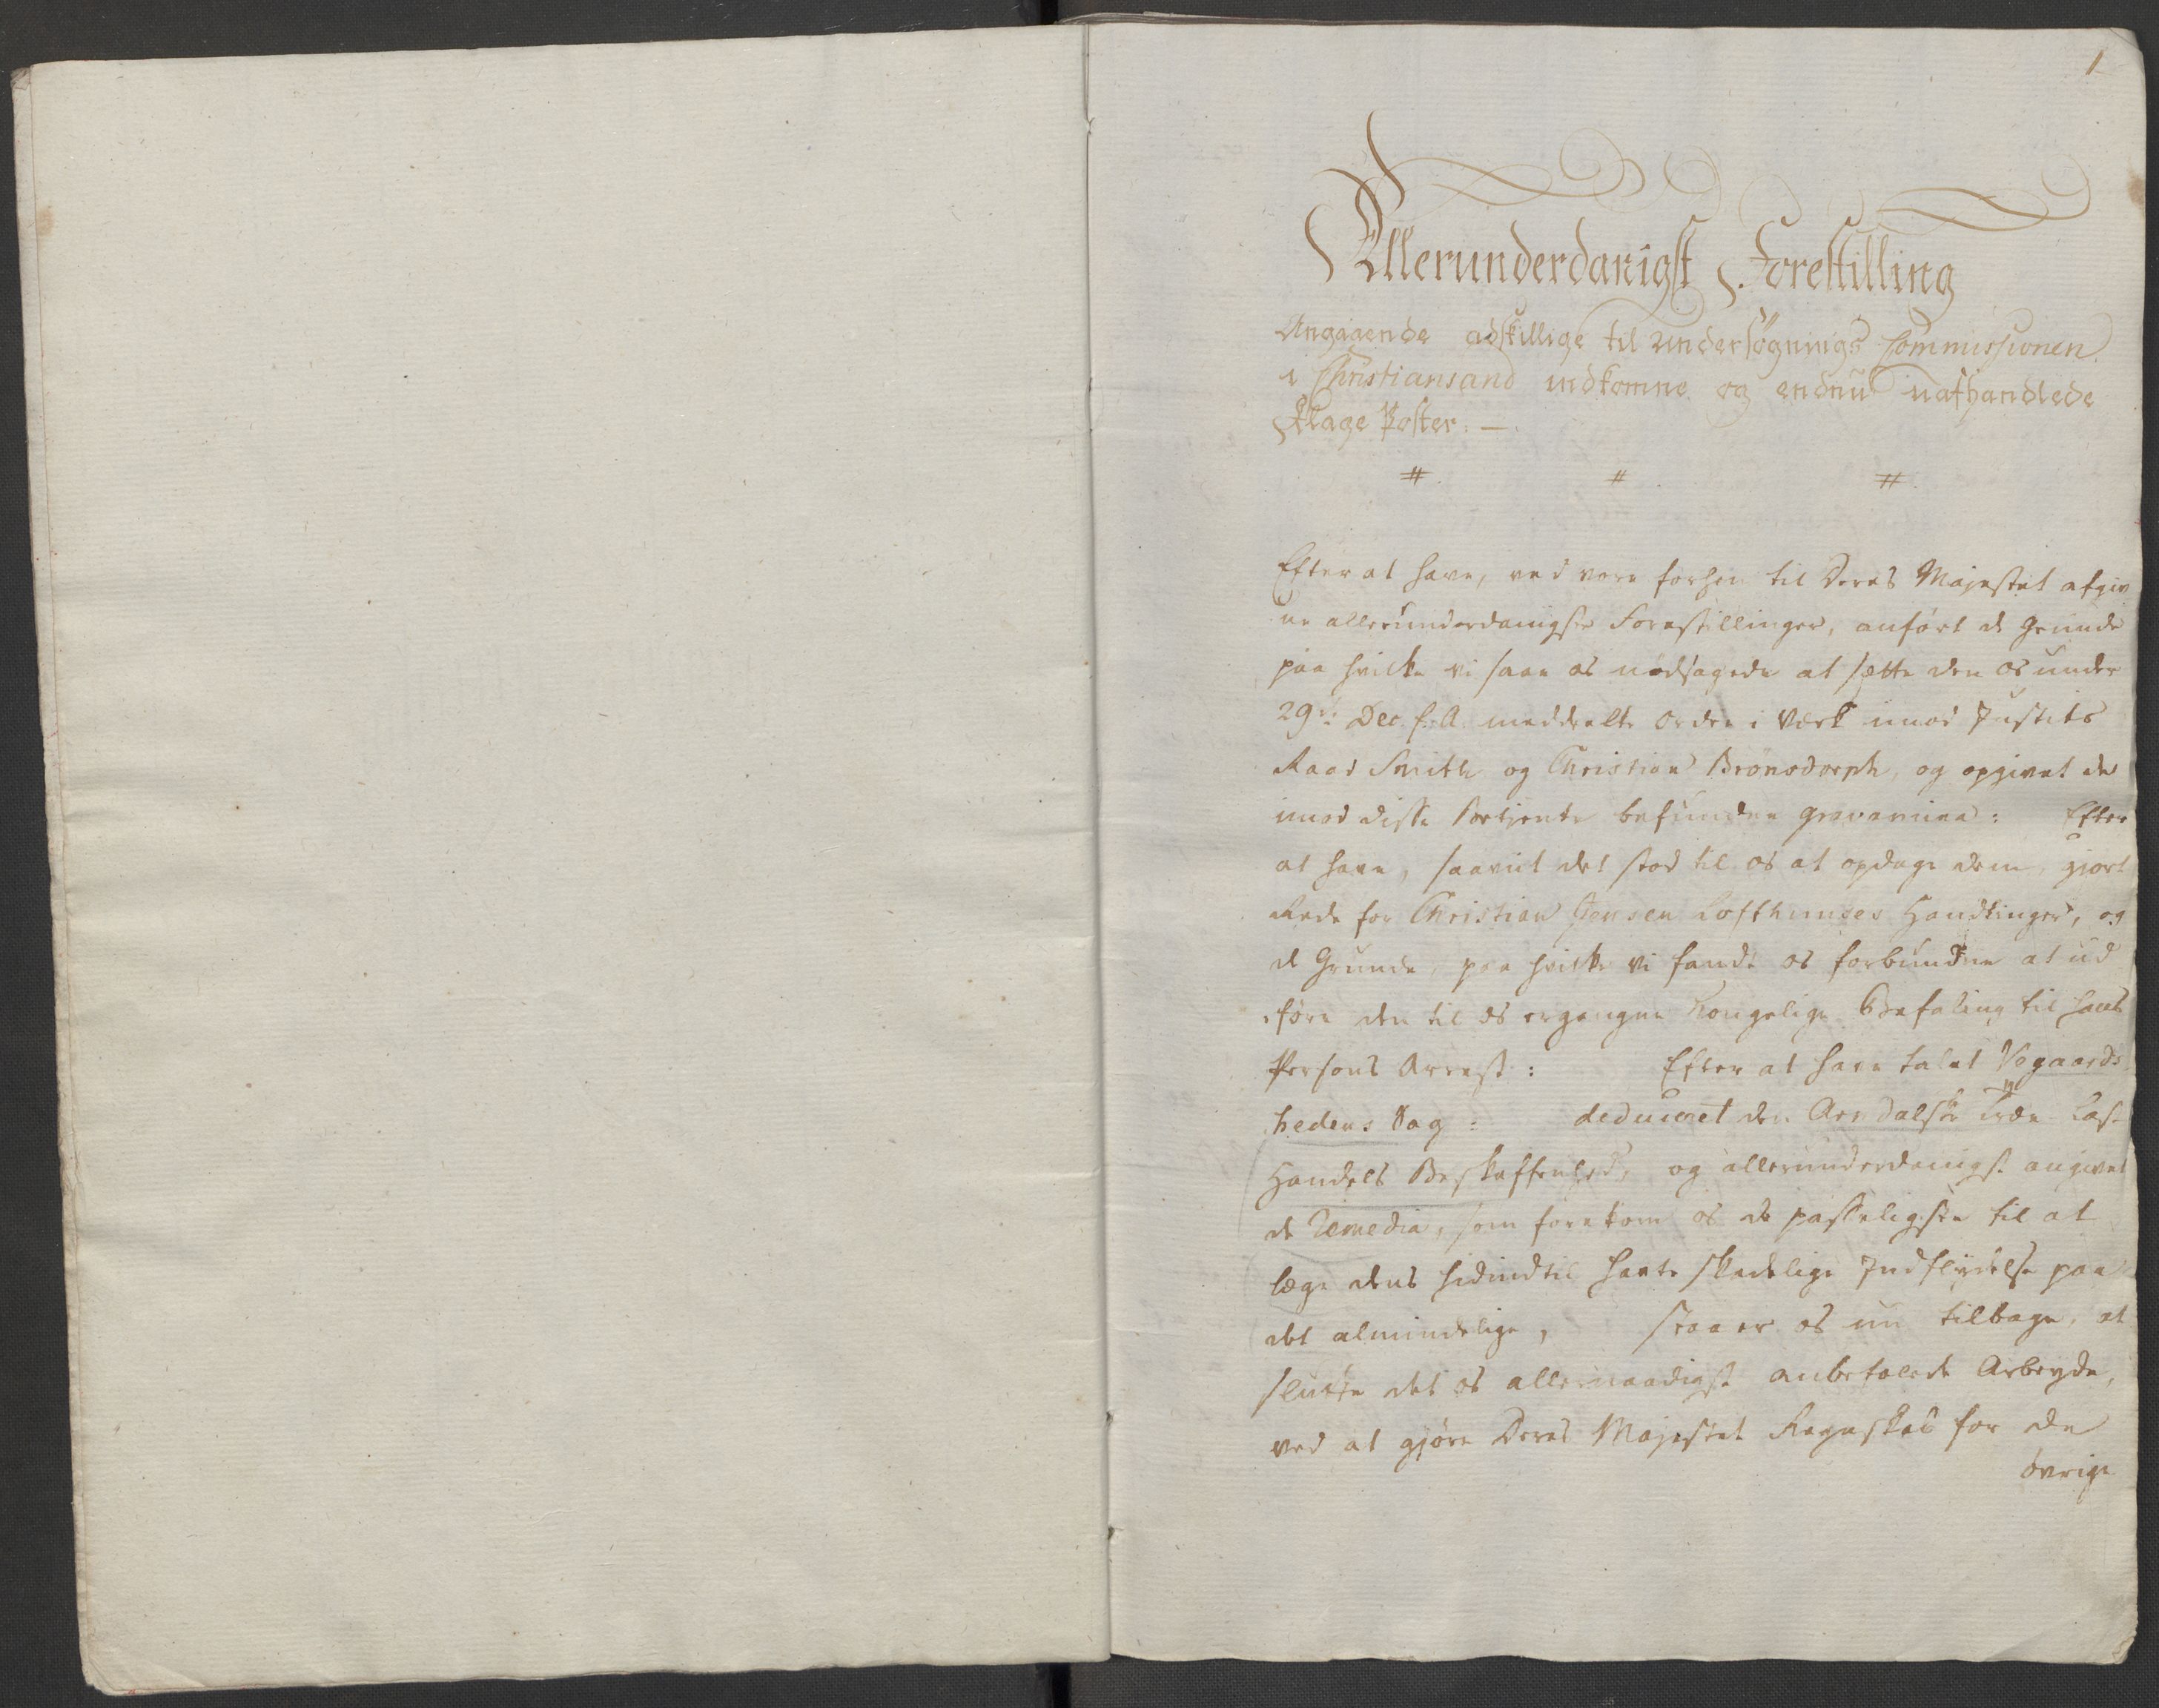 1
Allerunderdanigst Forestilling
Angaaende adskillige til Undersøgnings Commissionen
i Christiansand indkomne og endnu uafhandlede
Klage Poster. —
# # #
Efter at have, ved vore forhen til Deres Majestet afgiv
ne allerunderdanigste Forestillinger, anført de Grunde
paa hvilke vi saae os nødsagede at sætte den os under
29de Dec. f. A. meddeelte Ordre i Værk imod Justits
Raad Smith og Christian Brønsdorph, og opgivet de
imod disse Betjente befundne gravamina: Efter
at have, saavit det stod til os at opdage dem, gjort
Rede for Christian Jensen Lofthuuses Handlinger, og
de Grunde, paa hvilke vi fandt os forbundne at ud
føre den til os ergangne Kongelige Befaling til hans
Persons Arrest: Efter at have talet Vegaards
hedens Sag: deduceret den Arendalske Træ Last
Handels Beskaffenhed, og allerunderdanigst angivet
de Remedia, som forekom os de passeligste til at
læge dens hidindtil havte skadelige Indflydelse paa
det almindelige, staaer os nu tilbage, at
slutte det os allernaadigst anbefalede Arbeyde,
ved at gjøre Deres Majestet Regnskab for de
øvrige